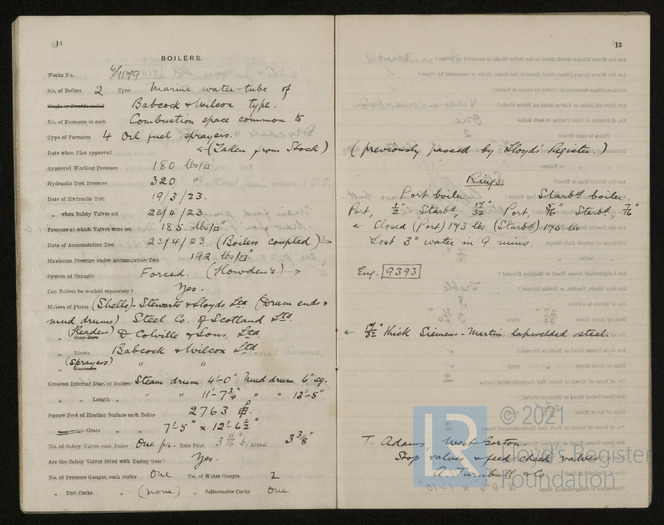 14
BOILERS.
Works No. 6/1179
No. of Boilers 2 Type Marine water-tube of
Single or Double ended Babcock & Wilcox type.
No. of Furnaces in each Combustion space common to
Type of Furnaces 4 Oil fuel sprayers.
Date when Plan approved ← (Taken from Stock)
Approved Working Pressure 180 lbs/□"
Hydraulic Test Pressure 320 "
Date of Hydraulic Test 19/3/23.
" when Safety Valves set 23/4/23.
Pressure at which Valves were set 185 lbs/□"
Date of Accumulation Test 23/4/23 (Boilers coupled) →
Maximum Pressure under Accumulation Test 192 lbs/□"
System of Draught Forced. (Howden's) →
Can Boilers be worked separately? Yes.
Makers of Plates (Shells) - Stewarts & Lloyds Ltd (Drum ends &
mud drums) Steel Co. of Scotland Ltd
(Headers) D. Colville & Sons, Ltd
" Rivets Babcock & Wilcox Ltd.
(Sprayers) " "
Greatest Internal Diam. of Boilers Steam drum 4'-0" Mud drum 6" sq.
" " Length " " 11'-7 3/4" " " 12'-5"
Square Feet of Heating Surface each Boiler 2763
" Grate " 7'-5" × 12'-6 1/2"
No. of Safety Valves each Boiler One pr. Rule Diam. Actual 3 3/8"
Are the Safety Valves fitted with Easing Gear? Yes.
No. of Pressure Gauges, each Boiler One No. of Water Gauges 2
" Test Cocks " (none) " Salinometer Cocks One
15
(previously passed by Lloyd's Register.)
Rings
Port boiler Starbd boiler.
Port, 1/2" Starbd, 17/32" Port, Starbd,
← Closed (Port) 173 lbs (Starbd) 175 lbs
Lost 3" water in 9 mins.
Eng. 9393
← 17/32" thick Siemens-Martin lapwelded steel.
T. Adams, West Gorton.
Stop valves & feed check valves
A. Turnbull & Co.
LR
© 2021
Lloyd's Register
Foundation